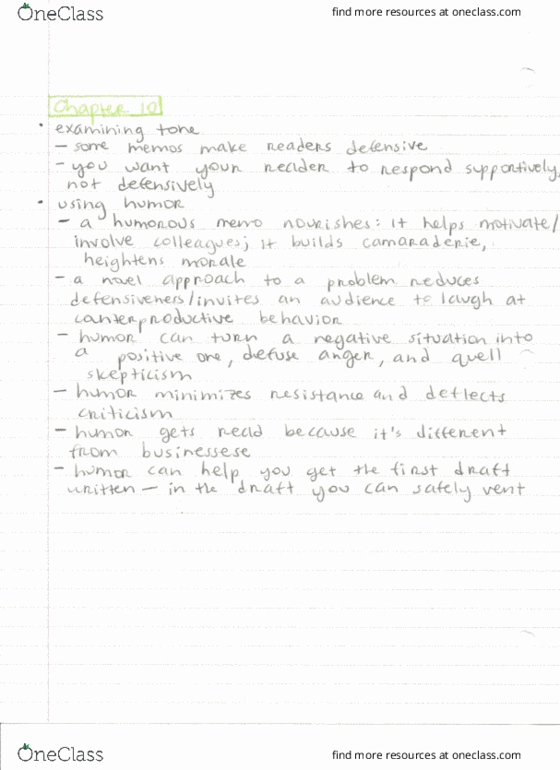 OneClass
find more resources at oneclass.com
Chapter 10
• examining tone
– some memos make readers defensive
– you want your reader to respond supportively,
not defensively
• using humor
– a humorous memo nourishes: it helps motivate/
involve colleagues; it builds camaraderie,
heightens morale
– a novel approach to a problem reduces
defensiveners/invites an audience to laugh at
counterproductive behavior
– humor can turn a negative situation into
a positive one, defuse anger, and quell
skepticism
– humor minimizes resistance and deflects
criticism
– humor gets read because it's different
from businessese
– humor can help you get the first draft
written – in the draft you can safely vent
OneClass
find more resources at oneclass.com